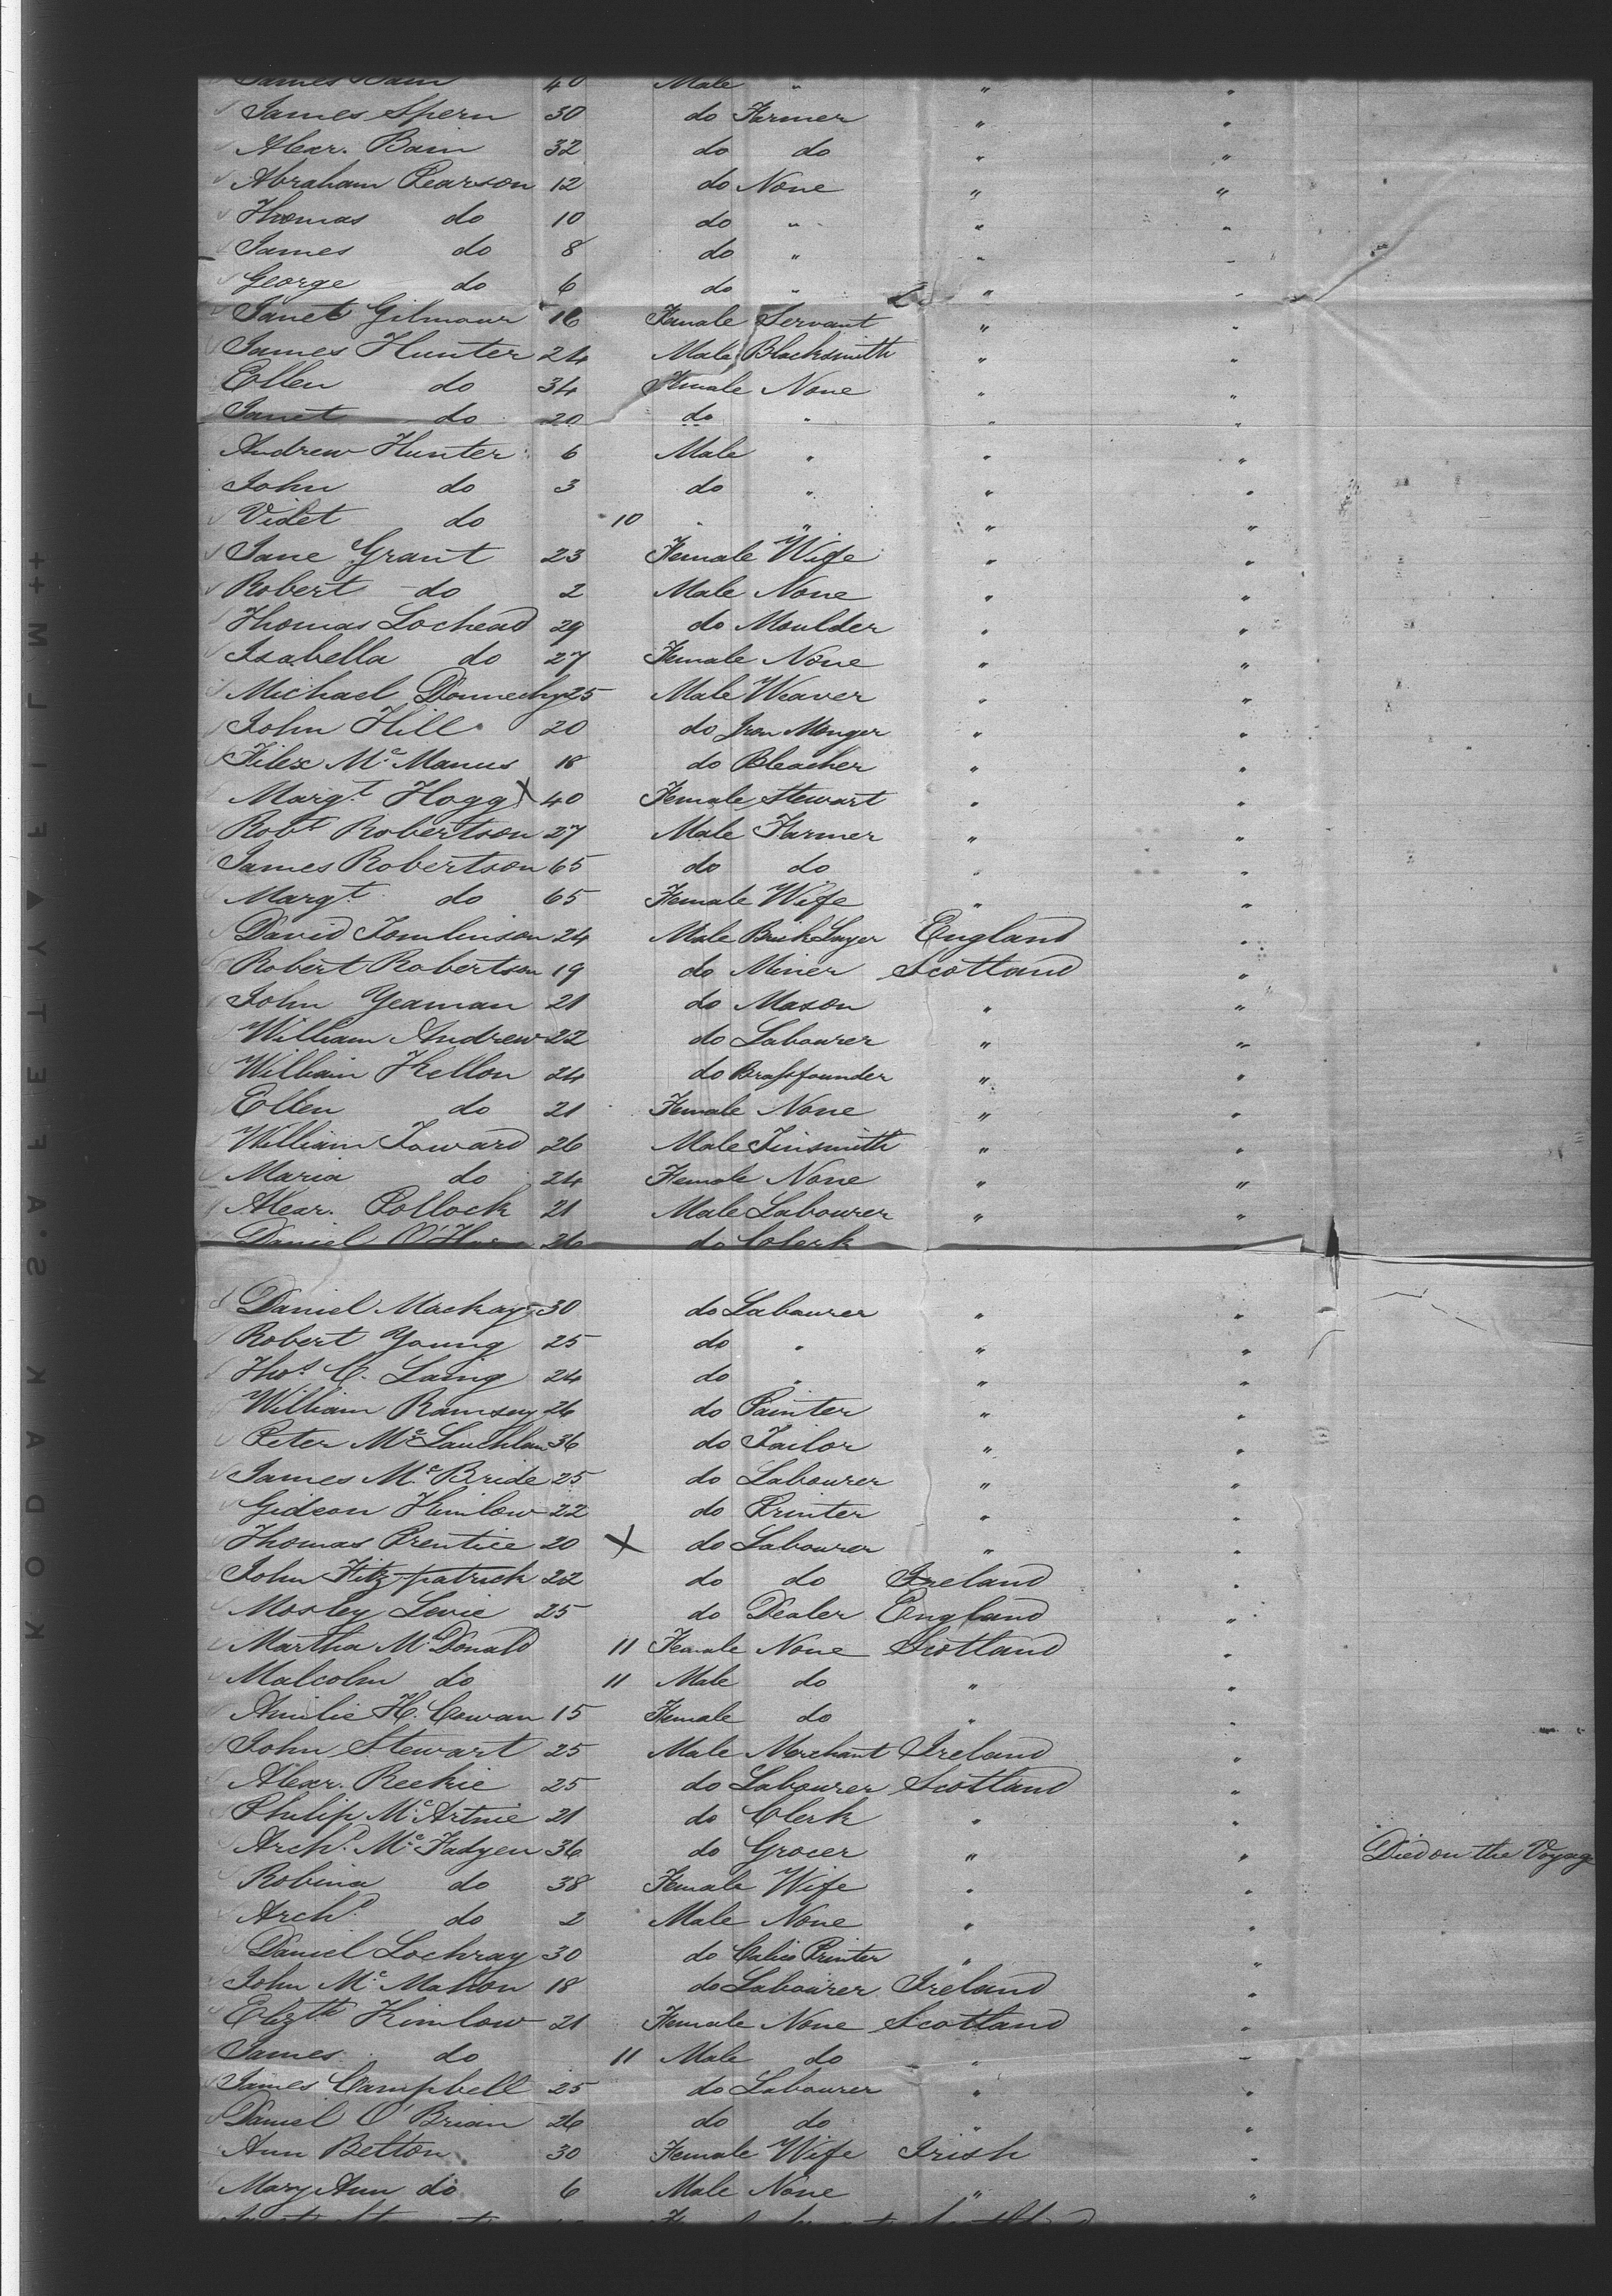 James Bain 40 Male " " "
James Spern 30 do Farmer " "
Alexr. Bain 32 do do " "
Abraham Pearson 12 do None " "
Thomas do 10 do " " "
James do 8 do " " "
George do 6 do " " "
Janet Gilmour 16 Female Servant " "
James Hunter 24 Male Blacksmith " "
Ellen do 34 Female None " "
Janet do 20 do " " "
Andrew Hunter 6 Male " " "
John do 3 do " " "
Violet do 10 " " " "
Jane Grant 23 Female Wife " "
Robert do 2 Male None " "
Thomas Lochead 29 do Moulder " "
Isabella do 27 Female None " "
Michael Donnechy 25 Male Weaver " "
John Hill 20 do Iron Monger " "
Filex Mc Manus 18 do Bleacher " "
Margt. Hogg X 40 Female Stewart " "
Robt Robertson 27 Male Farmer " "
James Robertson 65 do do " "
Margt. do 65 Female Wife " "
David Tomlinson 24 Male Brick Layer England "
Robert Robertson 19 do Miner Scotland "
John Yeaman 21 do Mason " "
William Andrew 22 do Labourer " "
William Kellon 24 do Brassfounder " "
Ellen do 21 Female None " "
William Toward 26 Male Tinsmith " "
Maria do 24 Female None " "
Alexr. Pollock 21 Male Labourer " "
Daniel 26 do Clerk
Daniel Mackay 30 do Labourer " "
Robert Young 25 do " " "
Thos. C. Laing 24 do " " "
William Ramsay 26 do Painter " "
Peter Mc Lauchlan 36 do Tailor " "
James Mc Bride 25 do Labourer " "
Gideon Kinlow 22 do Printer " "
Thomas Prentice 20 X do Labourer " "
John Fitzpatrick 22 do do Ireland "
Mosley Levie 25 do Dealer England "
Martha McDonald 11 Female None Scotland "
Malcolm do 11 Male do " "
Amilie H. Cowan 15 Female do " "
John Stewart 25 Male Merchant Ireland "
Alexr. Reekie 25 do Labourer Scotland "
Philip Mc Artnie 21 do Clerk " "
Archd. Mc Fadyen 36 do Grocer " " Died on the Voyag
Robina do 38 Female Wife " "
Archd. do 2 Male None " "
Daniel Lochray 30 do Calico Printer " "
John Mc Mahon 18 do Labourer Ireland "
Elizth Kinlow 21 Female None Scotland "
James do 11 Male do " "
James Campbell 25 do Labourer " "
Daniel O'Brian 26 do do " "
Ann Belton 30 Female Wife Irish "
Mary Ann do 6 Male None " "
KODAK S.A.F.E.T.Y ▲ FILM ++